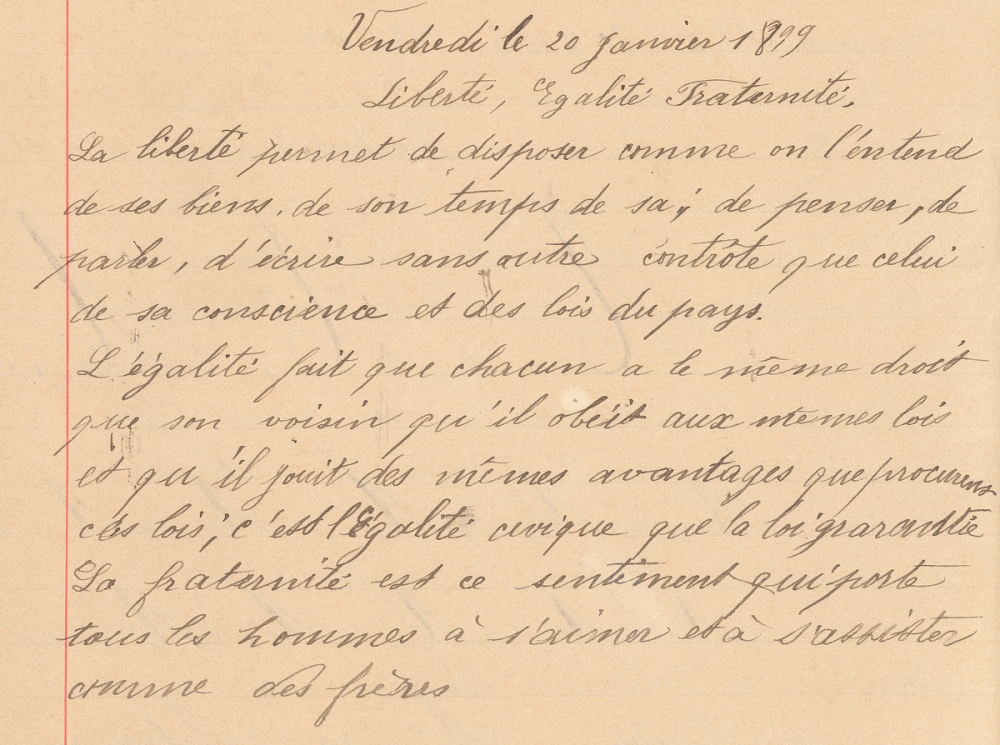 Vendredi le 20 Janvier 1899
Liberté, Egalité Fraternité.
La liberté permet de disposer comme on l'entend
de ses biens, de son temps de sa, de penser, de
parler, d'écrire sans autre contrôte que celui
de sa conscience et des lois du pays.
L'égalité fait que chacun a le même droit
que son voisin qu'il obéit aux mêmes lois
et qu'il jouit des mêmes avantages que procurent
ces lois, c'est l'égalité civique que la loi grarantie
La fraternité est ce sentiment qui porte
tous les hommes à s'aimer et à s'assister
comme des frères